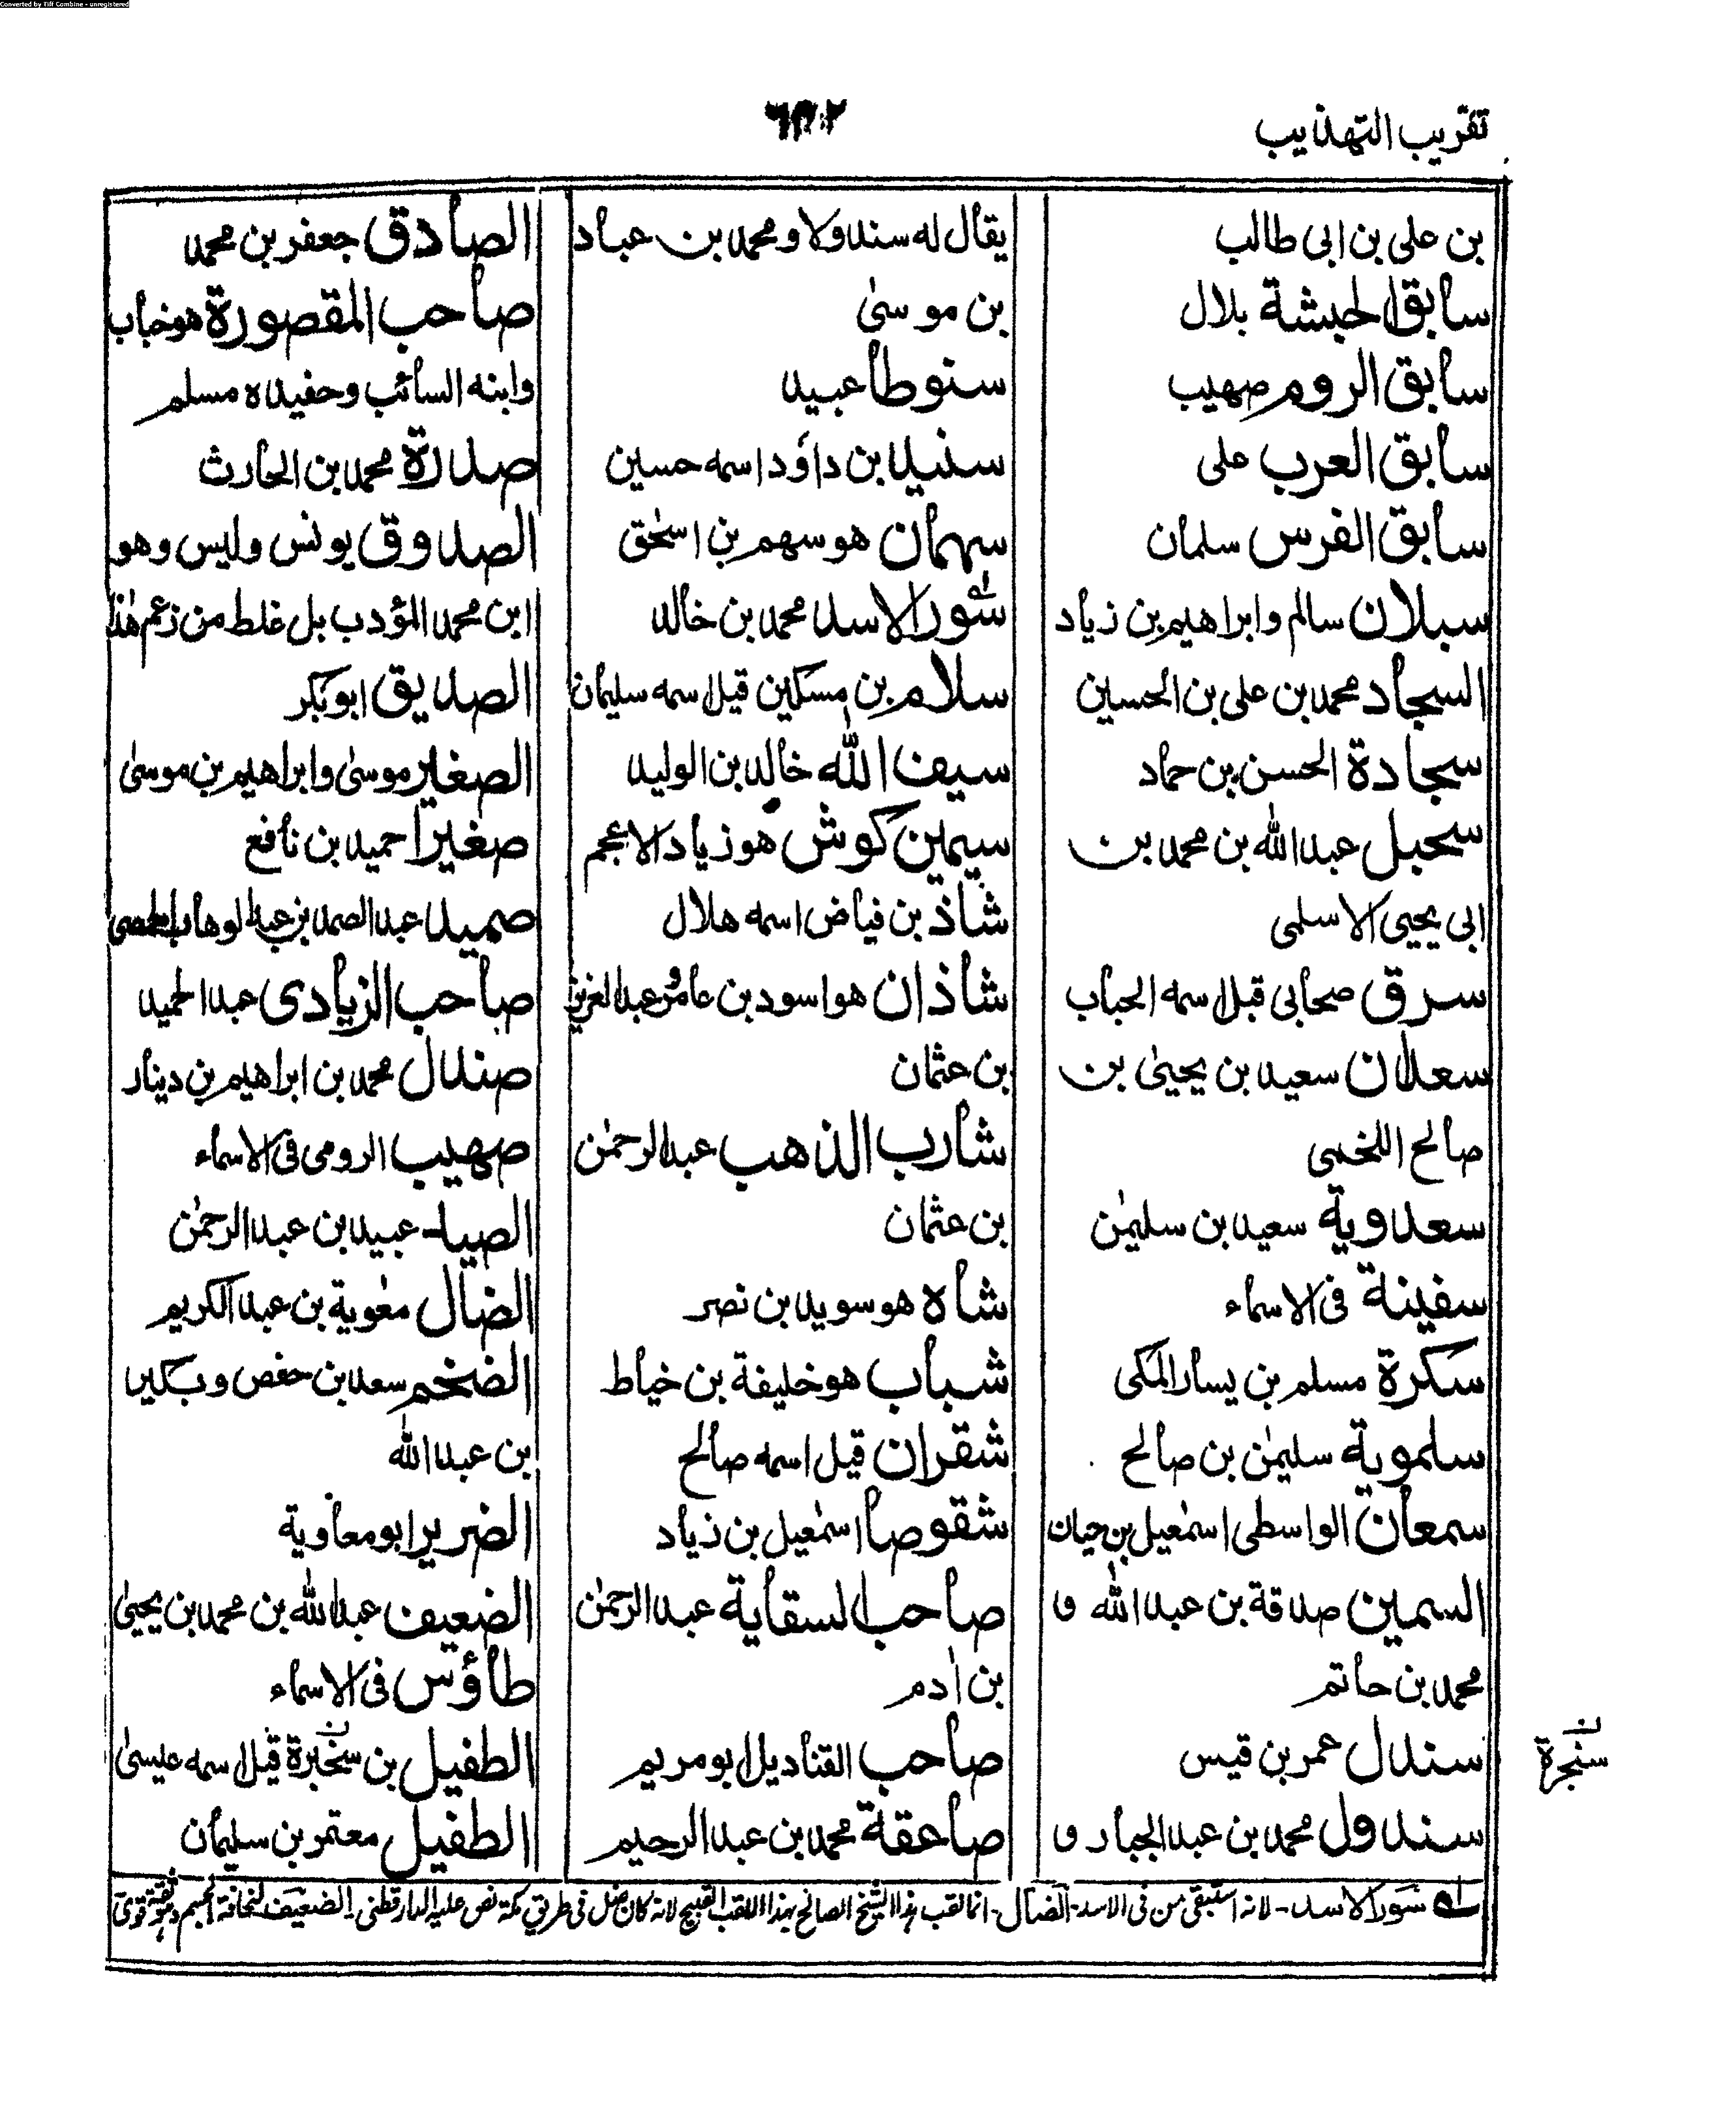 Converted by Tiff Combine - unregistered
تقريب التهذيب
بن على بن ابى طالب
سابق الحبشة بلال
سابق الروم صهيب
سابق العرب على
سابق الفرس سلمان
سبلان سالم وابراهيم بن زياد
السجاد محمد بن على بن الحسين
سجادة الحسن بن حماد
سحبل عبد الله بن محمد بن
ابى يحيى الاسلمى
سرق صحابى قيل اسمه الحباب
سعلان سعيد بن يحيىٰ بن
صالح اللخمى
سعدوية سعيد بن سليمٰن
سفينة فى الاسماء
سكرة مسلم بن يسار المكى
سلموية سليمٰن بن صالح
سمعان الواسطى اسمٰعيل بن حيان
السمين صدقة بن عبد الله و
محمد بن حاتم
سندل عمر بن قيس
سندول محمد بن عبد الجبار و
يقال له سندولا ومحمد بن عباد
بن موسىٰ
سنوطا عبيد
سنيد بن داؤد اسمه حسين
سهمان هو سهم بن اسحٰق
سور الاسد محمد بن خالد
سلام بن مسكين قيل اسمه سليمان
سيف الله خالد بن الوليد
سيمين كوش هو زياد الاعجم
شاذ بن فياض اسمه هلال
شاذان هو اسود بن عامر وعبد العزيز
بن عثمان
شارب الذهب عبد الرحمٰن
بن عثمان
شاه هو سويد بن نصر
شباب هو خليفة بن خياط
شقران قيل اسمه صالح
شقوصا اسمٰعيل بن زياد
صاحب السقاية عبد الرحمٰن
بن اٰدم
صاحب القناديل ابو مريم
صاعقة محمد بن عبد الرحيم
الصادق جعفر بن محمد
صاحب المقصورة هو خباب
وابنه السائب وحفيده مسلم
صدرة محمد بن الحارث
الصدوق يونس وليس وهو
ابن محمد المؤدب بل غلط من زعم هٰذا
الصديق ابو بكر
الصغير موسىٰ وابراهيم بن موسىٰ
صغيرا حميد بن نافع
صميد عبد الصمد بن عبد الوهاب الحمصى
صاحب الزيادى عبد الحميد
صندل محمد بن ابراهيم بن دينار
صهيب الرومى فى الاسماء
الصيد عبيد بن عبد الرحمٰن
الضال معٰوية بن عبد الكريم
الضخم سعد بن حفص وبكير
بن عبد الله
الضرير ابو معاوية
الضعيف عبد الله بن محمد بن يحيىٰ
طاؤس فى الاسماء
الطفيل بن سخبرة قيل اسمه عيسىٰ
الطفيل معتمر بن سليمان
سنجرة
سور الاسد - لانه استبقى من فى الاسد - الضال - انما لقب هذا الشيخ الصالح بهذا اللقب القبيح لانه كان ضل فى طريق مكة نص عليه الدارقطنى - الضعيف لنحافة الجسم وهو ثقة قوى